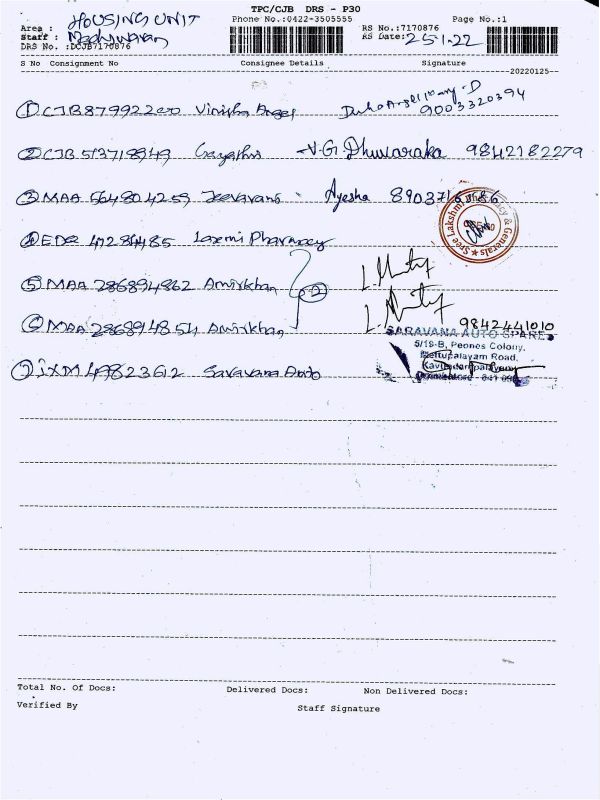 TPC/CJB DRS - P30
Area : HOUSING UNIT
Phone No.:0422-3505555
RS No.:7170876
Page No.:1
Staff :
RS Date: 25-1-22
DRS No. :DCJB7170876
S No Consignment No Consignee Details Signature
20220125
① CJB879922200 Vinisha Angel 9003320394
② CJB 513718949 Gayathri V.G. Dhuvaraka 9842182279
③ MAA 564804259 Jeevavani Ayesha 8903716586
Sree Lakshmi Pharmacy & Generals
④ EDR 41284485 Laxmi Pharmacy
⑤ MAA 286894862 Amirkhan ②
⑥ MAA 286894854 Amirkhan
9842441010
SARAVANA AUTO SPARES
5/19-B, Peones Colony,
Mettupalayam Road,
⑦ IXM 49823612 Saravana Auto
Total No. Of Docs: Delivered Docs: Non Delivered Docs:
Verified By Staff Signature